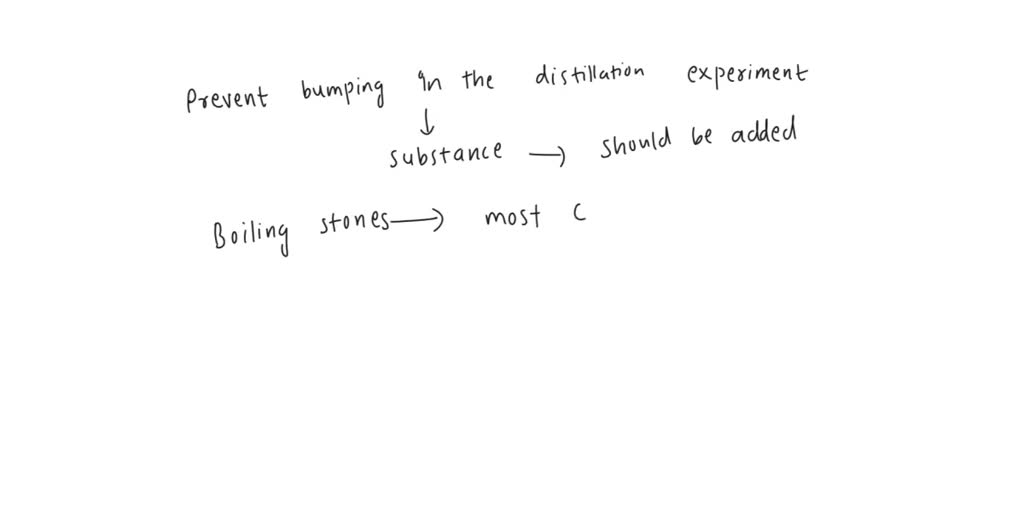 Prevent bumping in the distillation experiment
↓
substance → should be added
Boiling stones → most c